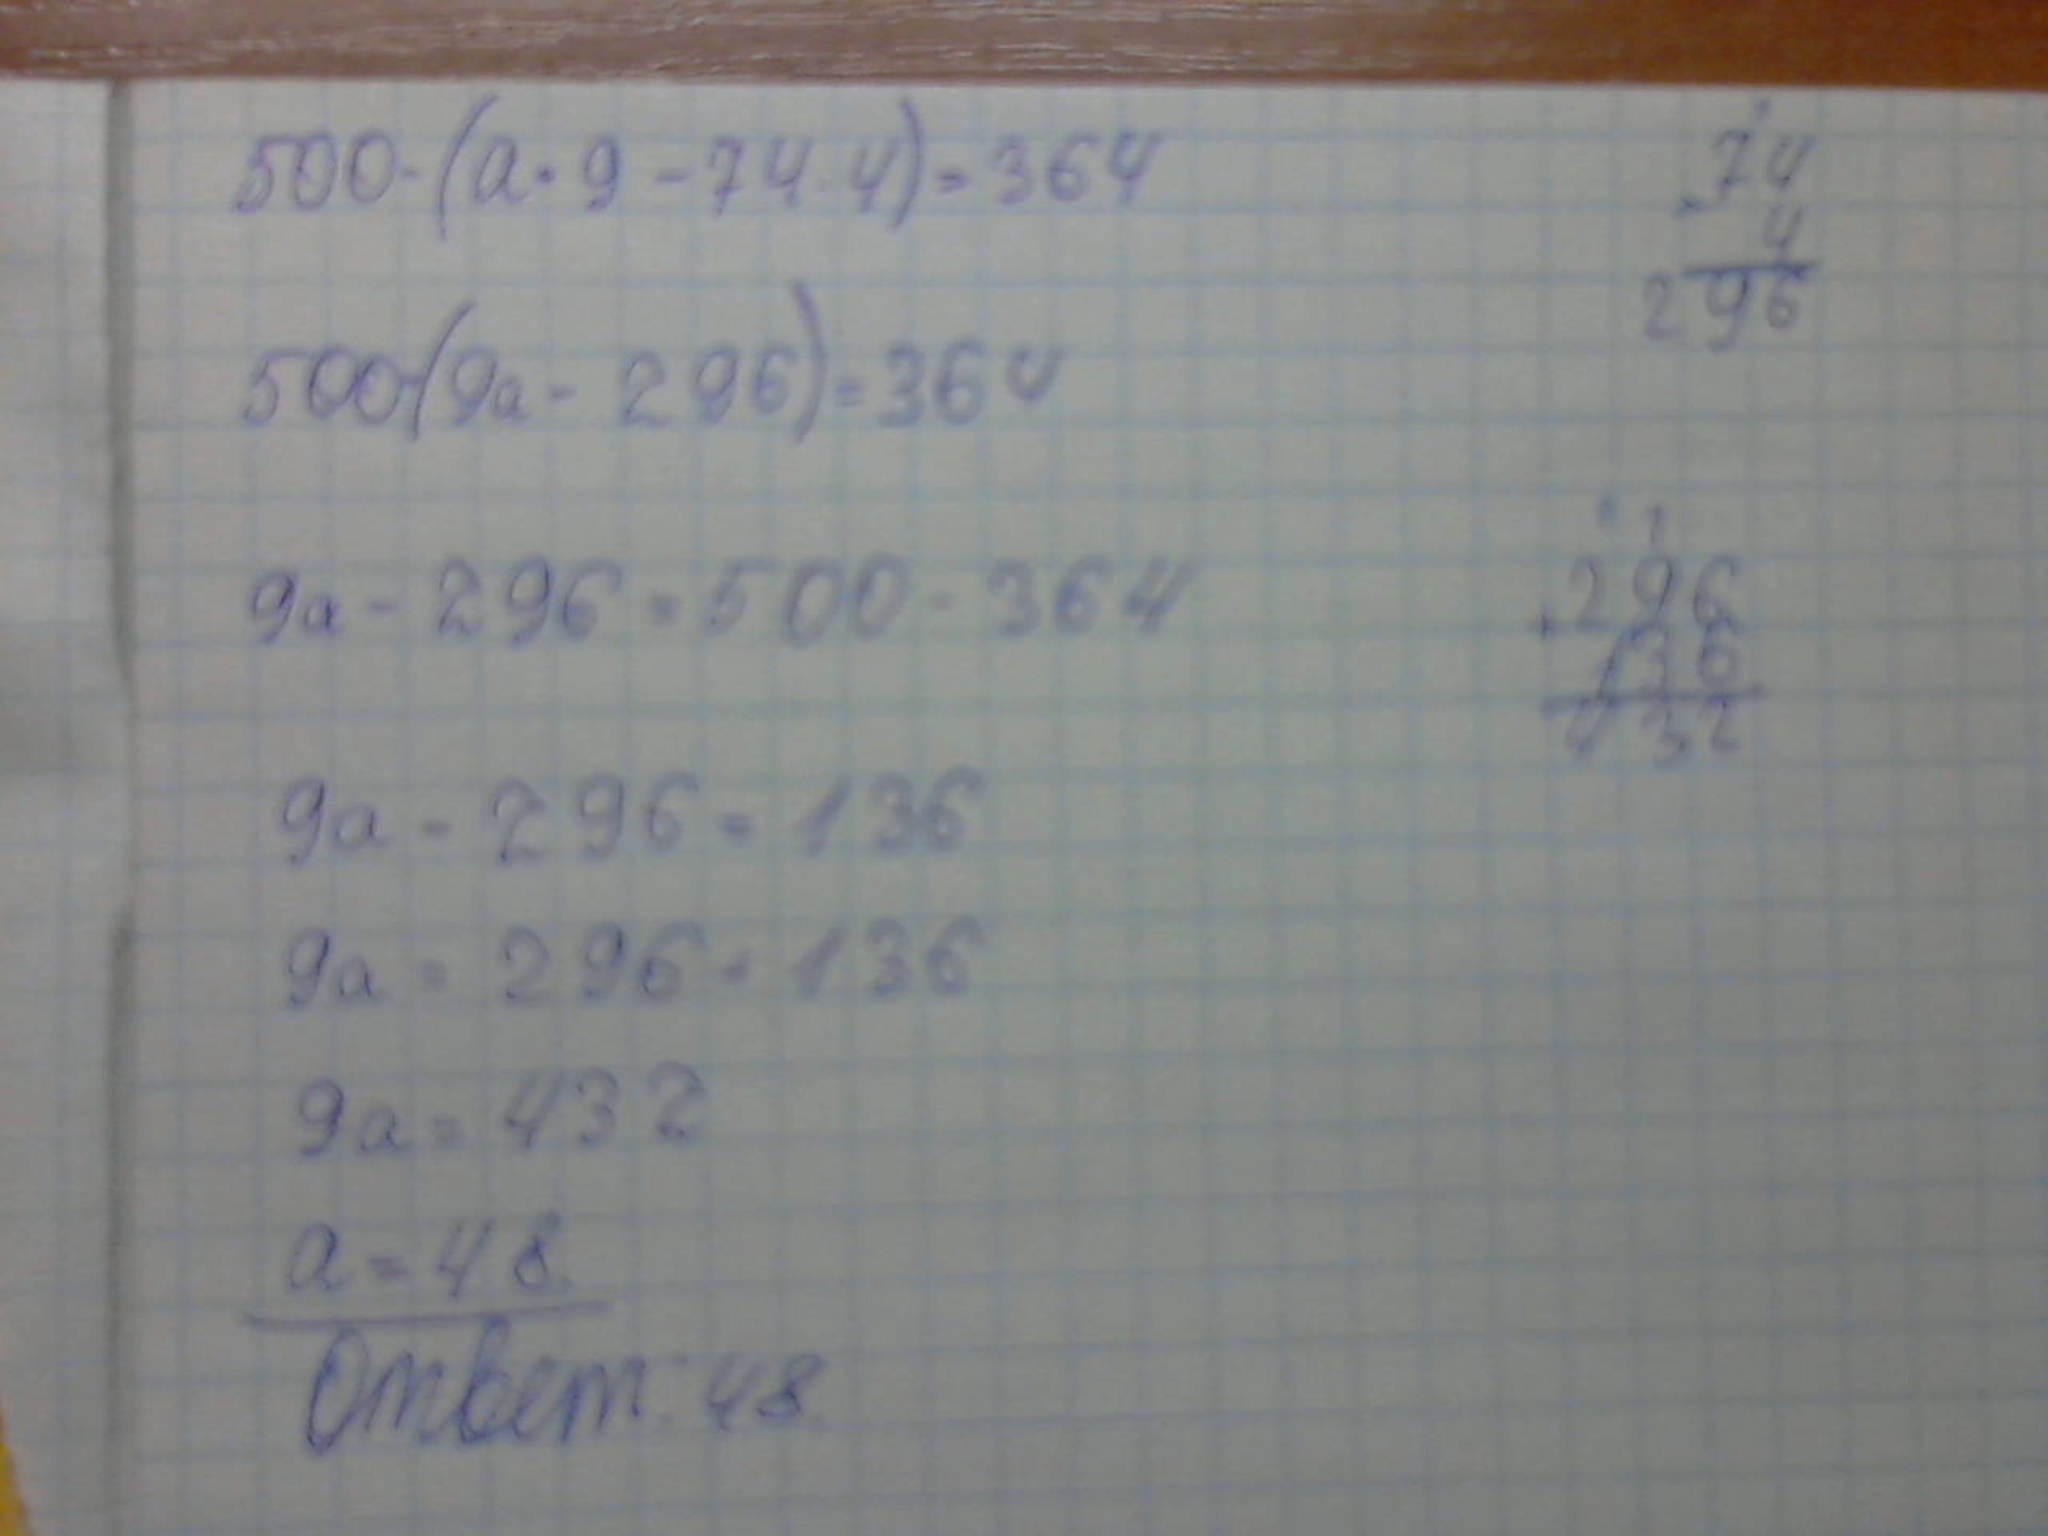 500-(a·9-74·4)=364
500-(9a-296)=364
9a-296=500-364
9a-296=136
9a=296+136
9a=432
a=48
Ответ: 48.
74
·4
296
296
+136
432